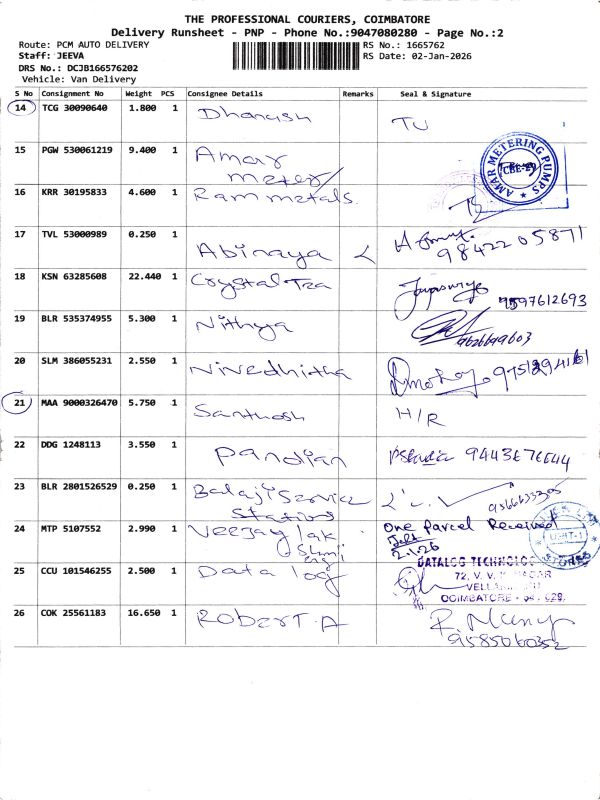 THE PROFESSIONAL COURIERS, COIMBATORE
Delivery Runsheet - PNP - Phone No.:9047080280 - Page No.:2
Route: PCM AUTO DELIVERY
RS No.: 1665762
Staff: JEEVA
RS Date: 02-Jan-2026
DRS No.: DCJB166576202
Vehicle: Van Delivery
S No Consignment No Weight PCS Consignee Details Remarks Seal & Signature
14 TCG 30090640 1.800 1 Dhanush TU
15 PGW 530061219 9.400 1 Amar
meter
AMAR METERING PUMPS
CBE-29
16 KRR 30195833 4.600 1 Ram metals.
17 TVL 53000989 0.250 1 Abinaya
9842205871
18 KSN 63285608 22.440 1 Crystal Tza
9597612693
19 BLR 535374955 5.300 1 Nithya
9626699603
20 SLM 386055231 2.550 1 Nivedhitha
21 MAA 9000326470 5.750 1 Santhosh H/R
22 DDG 1248113 3.550 1 Pandian
23 BLR 2801526529 0.250 1 Balaji Service
Stations
24 MTP 5107552 2.990 1 Veejay lak
shmi
eng
One Parcel Received
2.1.26
UNIT-1
STORES
25 CCU 101546255 2.500 1 Data log
DATALOG TECHNOLOG
72, V. V. NAGAR
COIMBATORE - 641 029.
26 COK 25561183 16.650 1 Robert. A
9585060352